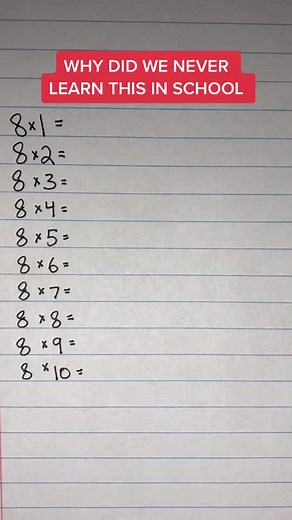 WHY DID WE NEVER
LEARN THIS IN SCHOOL
8x1 =
8x2=
8 x3=
8 x4=
8 x5=
8 x6=
8 x7=
8 x8=
8 x9=
8 x10=